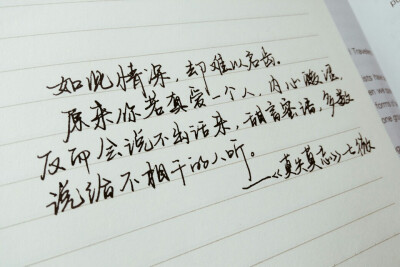 如此情深,却难以启齿。
原来你若真爱一个人,内心酸涩,
反而会说不出话来,甜言蜜语,多数
说给不相干的人听。
——《莫失莫忘》七微